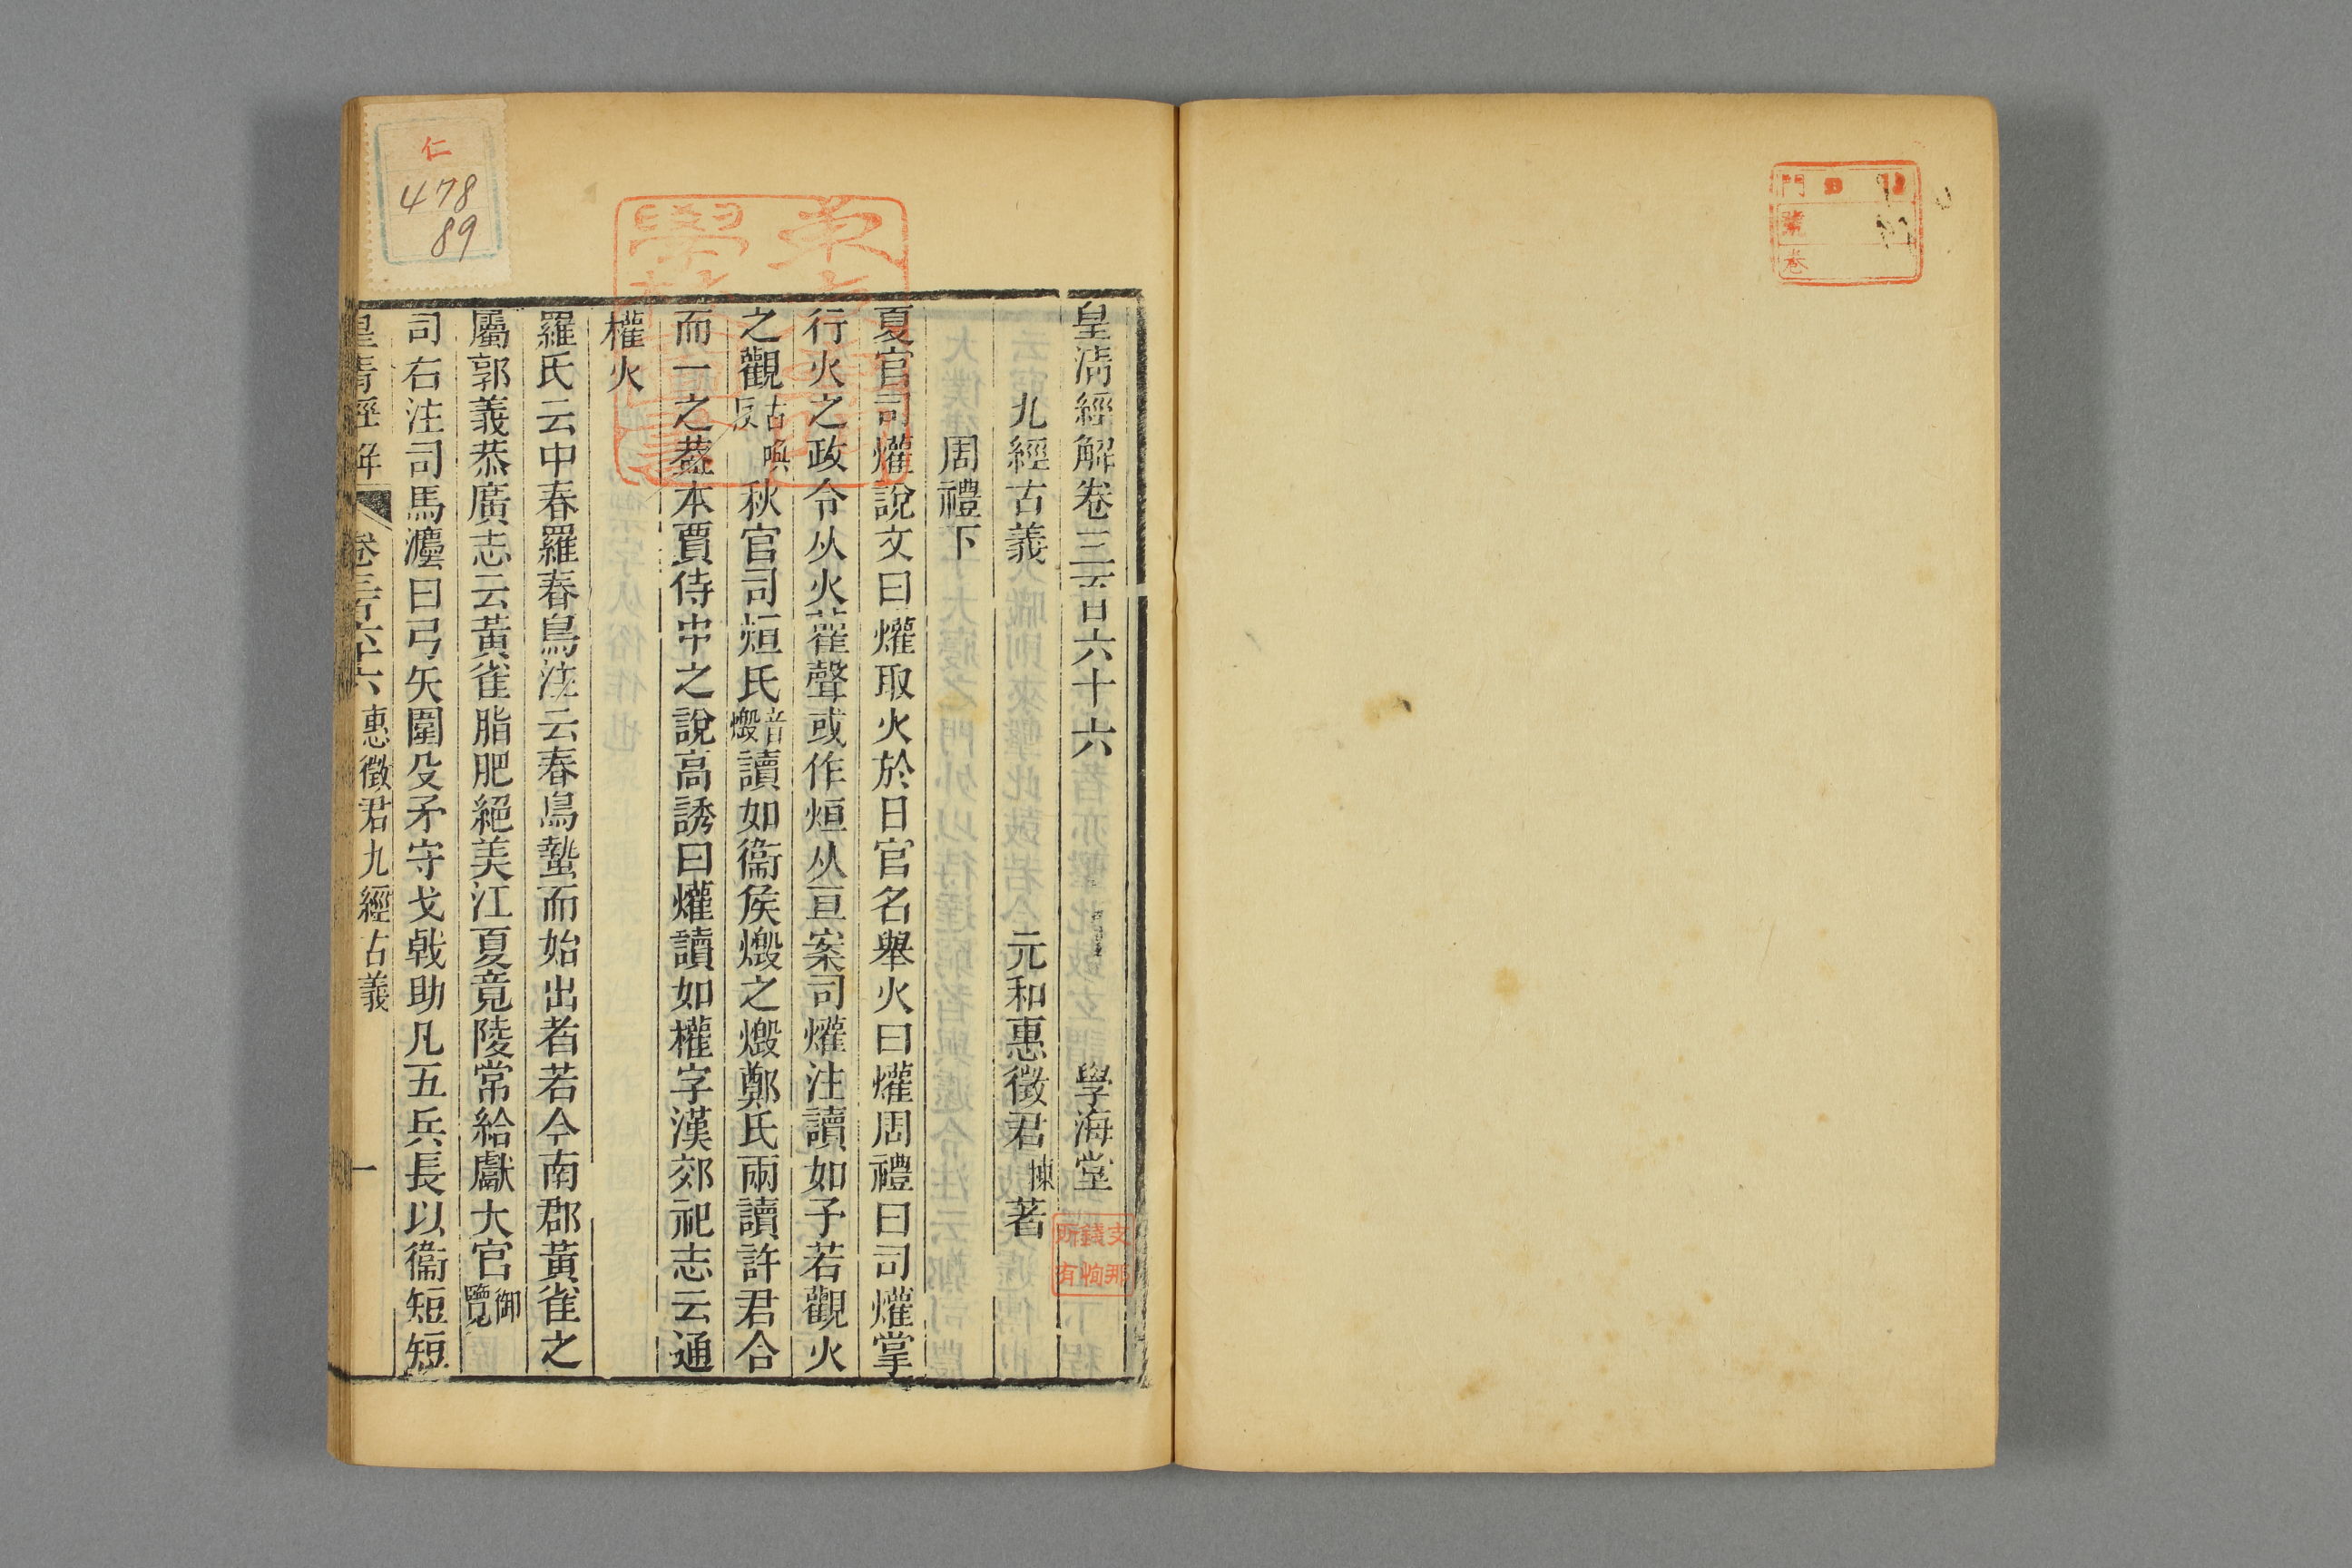 皇清經解卷三百六十六 學海堂
九經古義 元和惠徵君棟著
周禮下
夏官司爟說文曰爟取火於日官名舉火曰爟周禮曰司爟掌
行火之政令从火雚聲或作烜从亘案司爟注讀如予若觀火
之觀古喚反秋官司烜氏音燬讀如衞侯燬之燬鄭氏兩讀許君合
而一之葢本賈侍中之說高誘曰爟讀如權字漢郊祀志云通
權火
羅氏云中春羅春鳥注云春鳥蟄而始出者若今南郡黃雀之
屬郭義恭廣志云黃雀脂肥絕美江夏竟陵常給獻大官御覽
司右注司馬灋曰弓矢圍殳矛守戈戟助凡五兵長以衞短短
皇清經解 卷三百六十六 惠徵君九經古義 一
仁
478
89
支那錢恂所有
門
號
卷